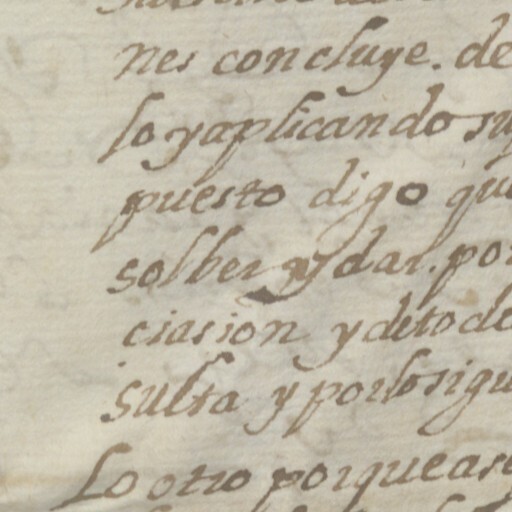 nes concluye. de
lo y aplicando su
puesto digo que
solber y dar. por
ciasion y deto de
sulta y porlo sigu
Lo otro porque as